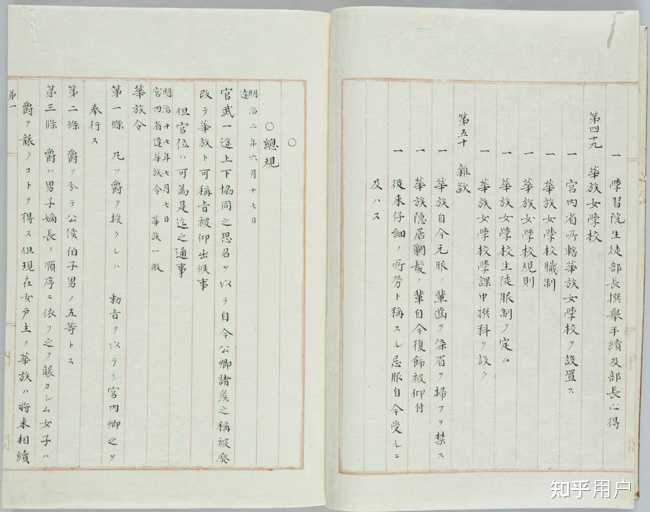 一 學習院生徒部長撰擧手續及部長心得
第四十九 華族女學校
一 宮内省所轄華族女學校ヲ設置ス
一 華族女學校職制
一 華族女學校規則
一 華族女學校生徒服制ヲ定ム
一 華族女學校學課中撰科ヲ設ク
第五十 雜款
一 華族自今元服ノ輩齒ヲ染眉ヲ掃フヲ禁ス
一 華族隱居剃髮ノ輩自今復飾被仰付
一 從来仔細ノ所労ト稱スル忌服自今受ルニ
及ハス
○
○總規
達 明治二年六月十七日
官武一途上下協同之思召ヲ以テ自今公卿諸侯之稱被廢
改テ華族ト可稱旨被仰出候事
但官位ハ可為是迄之通事
明治十七年七月七日
宮内省達華族令 華族一般
華族令
第一條 凡ソ爵ヲ授クルハ 勅旨ヲ以テシ宮内卿之ヲ
奉行ス
第二條 爵ヲ分テ公侯伯子男ノ五等トス
第三條 爵ハ男子嫡長ノ順序ニ依リ之ヲ襲カシム女子ハ
爵ヲ襲クコトヲ得ス但現在女戸主ノ華族ハ将来相續
第一
知乎用户